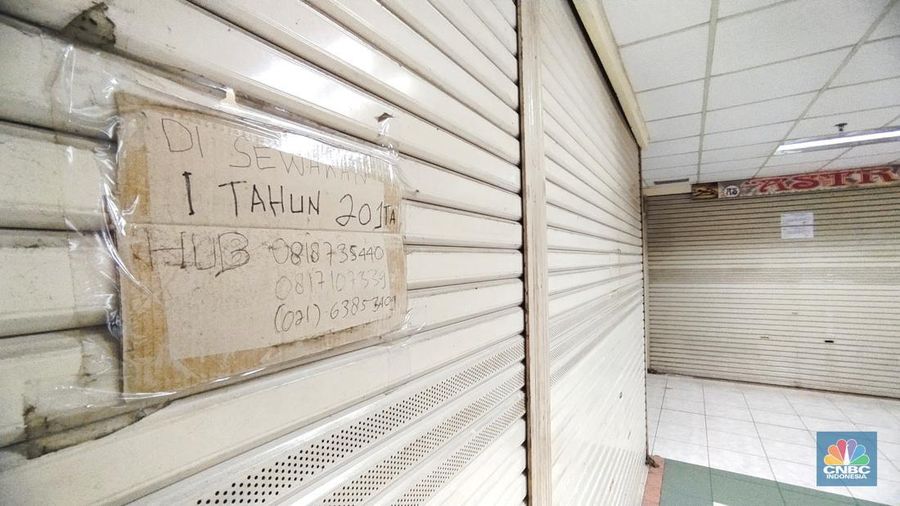 DI SEWAKAN
1 TAHUN 20JTA
HUB 0818735440
0817107339
(021) 6385340
ASTR
CNBC
INDONESIA